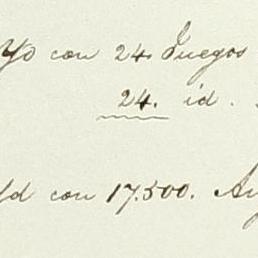 Yo con 24 Juegos
24. id.
Id con 17.500. Ag